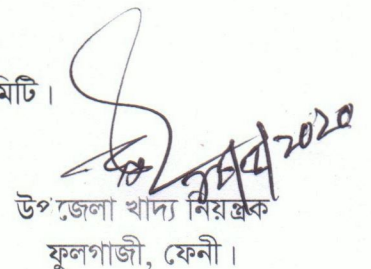 মিটি।
২০২০
উপজেলা খাদ্য নিয়ন্ত্রক
ফুলগাজী, ফেনী।